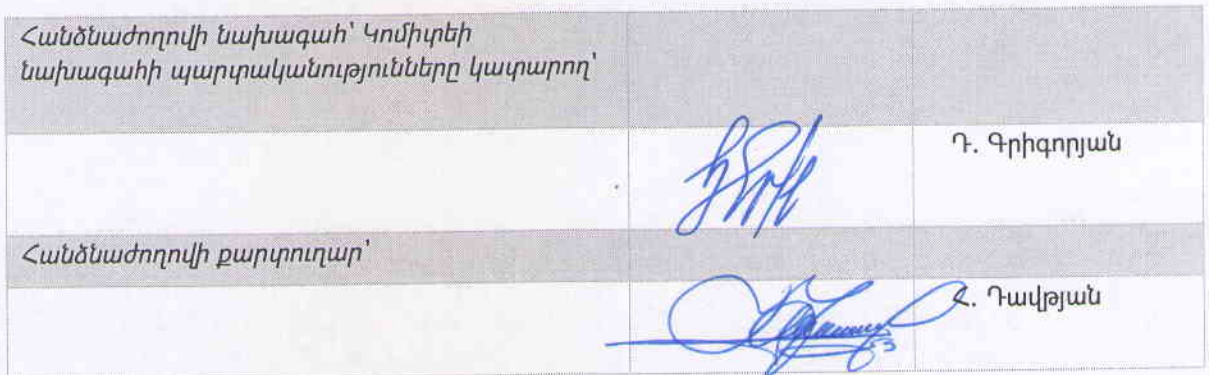 Հանձնաժողովի նախագահ՝ Կոմիտեի
նախագահի պարտականությունները կատարող՝
Դ. Գրիգորյան
Հանձնաժողովի քարտուղար՝
Հ. Դավթյան